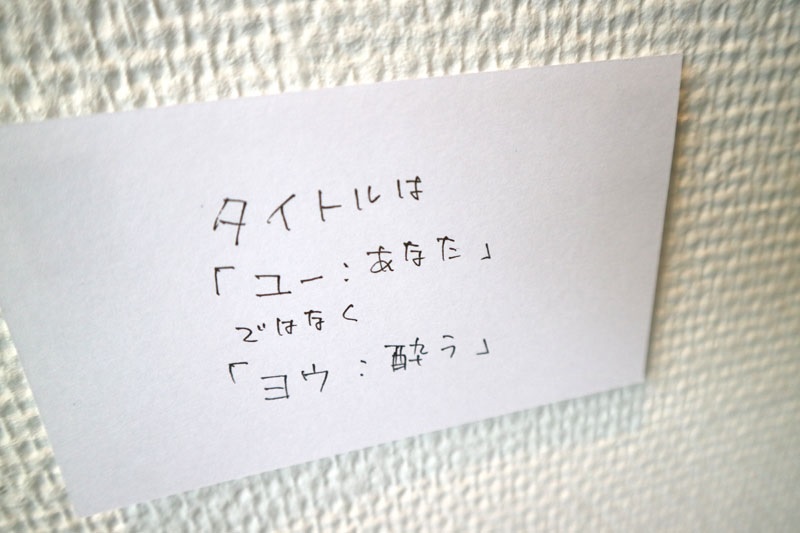 タイトルは
「ユー：あなた」
ではなく
「ヨウ：酔う」